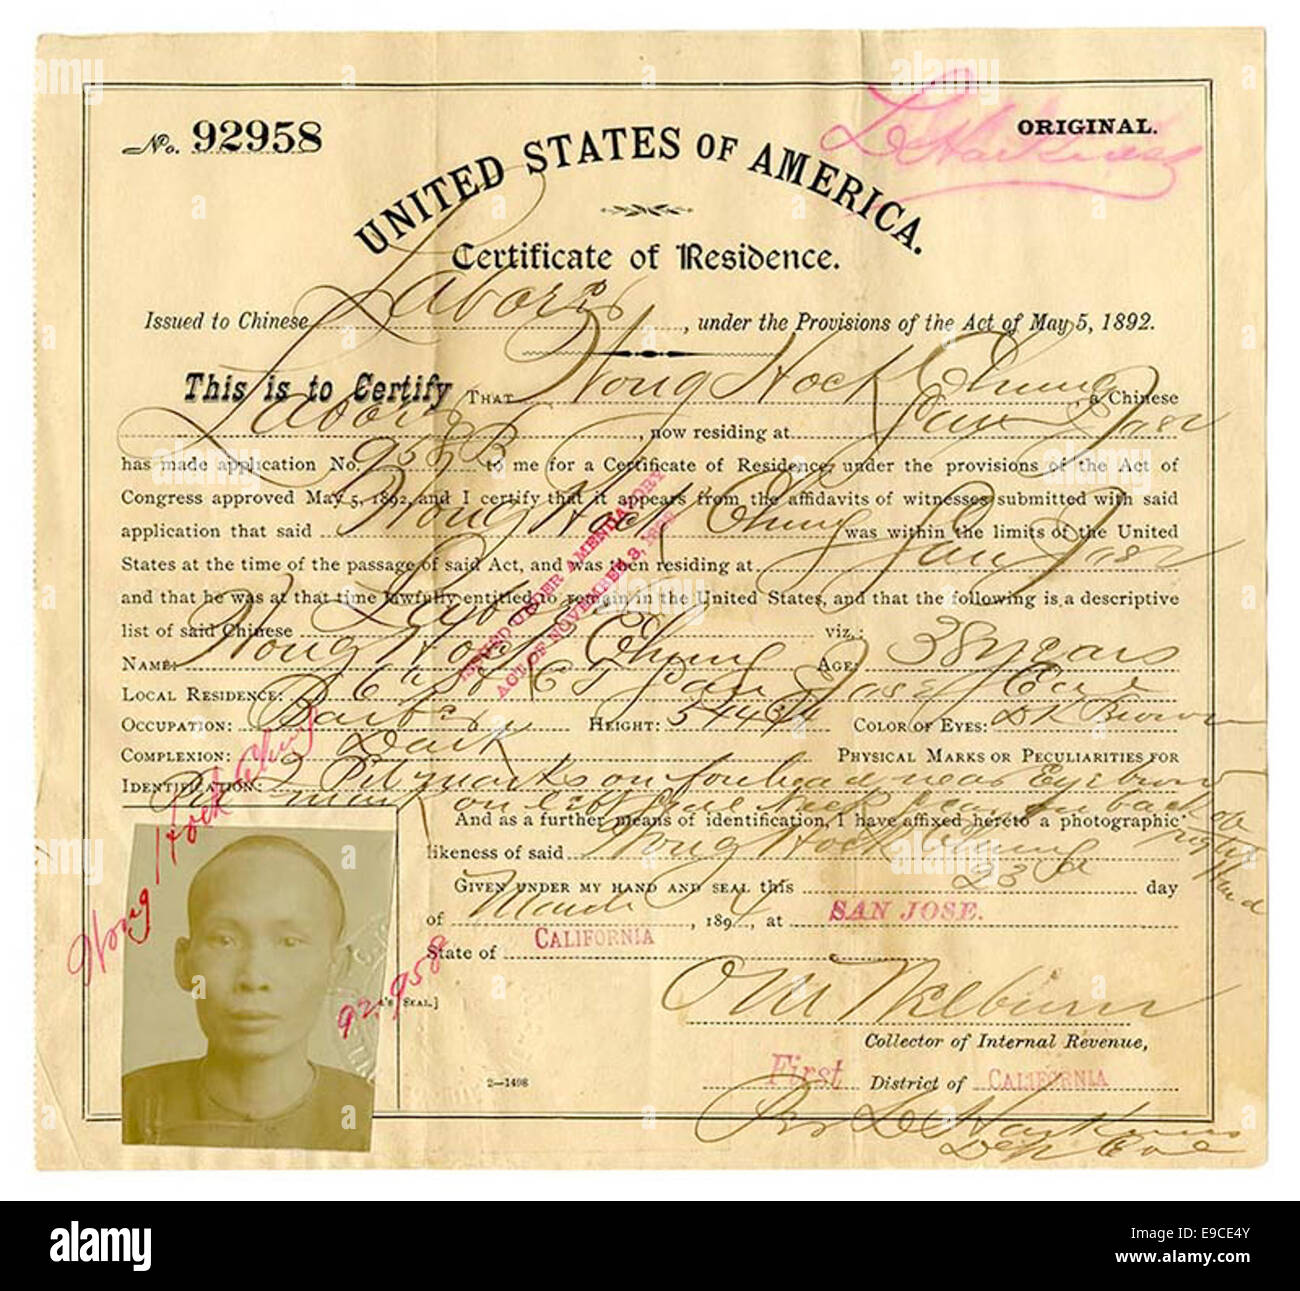 No. 92958
ORIGINAL.
L Harkness
UNITED STATES OF AMERICA.
Certificate of Residence.
Issued to Chinese Laborer, under the Provisions of the Act of May 5, 1892.
This is to Certify THAT Wong Hock Chung, a Chinese
Laborer, now residing at San Jose
has made application No. 95 to me for a Certificate of Residence, under the provisions of the Act of
Congress approved May 5, 1892, and I certify that it appears from the affidavits of witnesses submitted with said
application that said Wong Hock Chung was within the limits of the United
States at the time of the passage of said Act, and was then residing at San Jose
and that he was at that time lawfully entitled to remain in the United States, and that the following is a descriptive
list of said Chinese Laborer viz.:
NAME: Wong Hock Chung AGE: 38 years
LOCAL RESIDENCE: San Jose
OCCUPATION: HEIGHT: 5 4 COLOR OF EYES: Dk Brown
COMPLEXION: Dark PHYSICAL MARKS OR PECULIARITIES FOR
IDENTIFICATION: 2 Pit marks on forehead near Eyebrow
And as a further means of identification, I have affixed hereto a photographic
likeness of said Wong Hock Chung
GIVEN UNDER MY HAND AND SEAL this 23rd day
of March, 1894, at SAN JOSE.
State of CALIFORNIA
ISSUED UNDER AMENDATORY
ACT OF NOVEMBER 3, 1893.
Wong Hock Chung
92.958
SEAL.]
O M Welburn
Collector of Internal Revenue,
First District of CALIFORNIA
2—1498
Per L Harkness
Dep
alamy
Image ID: E9CE4Y
www.alamy.com